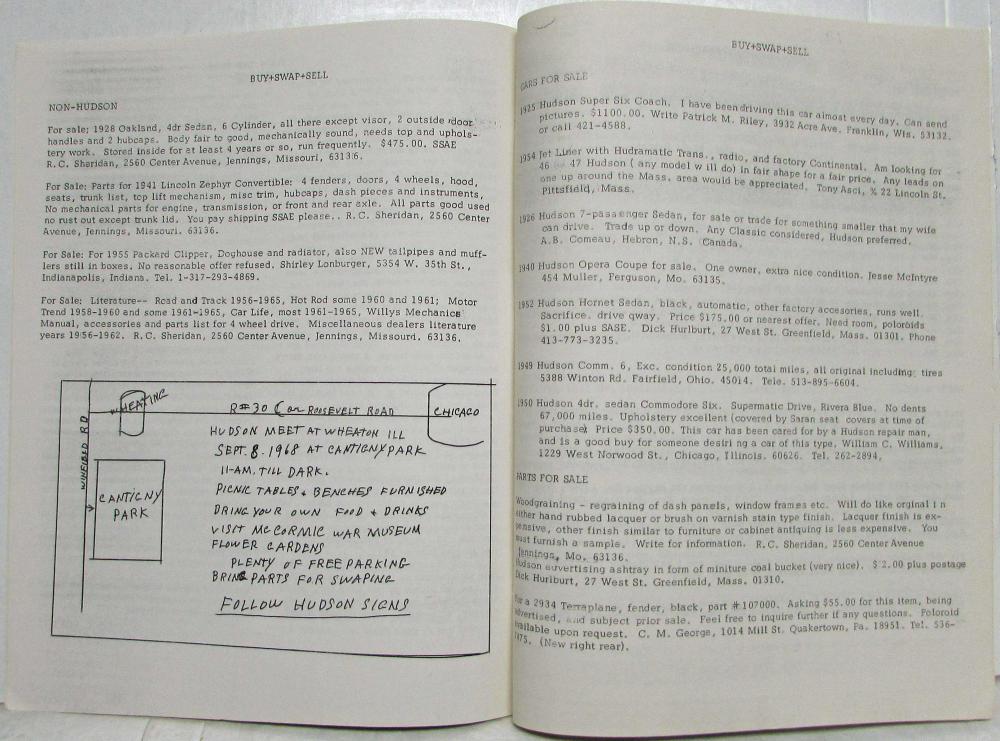 BUY+SWAP+SELL
NON-HUDSON
For sale; 1928 Oakland, 4dr Sedan, 6 Cylinder, all there except visor, 2 outside door
handles and 2 hubcaps. Body fair to good, mechanically sound, needs top and uphols-
tery work. Stored inside for at least 4 years or so, run frequently. $475.00. SSAE
R.C. Sheridan, 2560 Center Avenue, Jennings, Missouri, 63136.
For Sale: Parts for 1941 Lincoln Zephyr Convertible: 4 fenders, doors, 4 wheels, hood,
seats, trunk list, top lift mechanism, misc trim, hubcaps, dash pieces and instruments,
No mechanical parts for engine, transmission, or front and rear axle. All parts good used
no rust out except trunk lid. You pay shipping SSAE please.. R.C. Sheridan, 2560 Center
Avenue, Jennings, Missouri. 63136.
For Sale: For 1955 Packard Clipper, Doghouse and radiator, also NEW tailpipes and muff-
lers still in boxes. No reasonable offer refused. Shirley Lonburger, 5354 W. 35th St.,
Indianapolis, Indiana. Tel. 1-317-293-4869.
For Sale: Literature-- Road and Track 1956-1965, Hot Rod some 1960 and 1961; Motor
Trend 1958-1960 and some 1961-1965, Car Life, most 1961-1965, Willys Mechanics
Manual, accessories and parts list for 4 wheel drive. Miscellaneous dealers literature
years 1956-1962. R.C. Sheridan, 2560 Center Avenue, Jennings, Missouri. 63136.
WHEATING
R#30 (or ROOSEVELT ROAD
CHICAGO
WINFIELD RD
CANTIGNY
PARK
HUDSON MEET AT WHEATON ILL
SEPT. 8. 1968 AT CANTIGNY PARK
11-AM. TILL DARK.
PICNIC TABLES & BENCHES FURNISHED
BRING YOUR OWN FOOD & DRINKS
VISIT MCCORMIC WAR MUSEUM
FLOWER GARDENS
PLENTY OF FREE PARKING
BRING PARTS FOR SWAPING
FOLLOW HUDSON SIGNS
BUY+SWAP+SELL
CARS FOR SALE
1925 Hudson Super Six Coach. I have been driving this car almost every day. Can send
pictures. $1100.00. Write Patrick M. Riley, 3932 Acre Ave. Franklin, Wis. 53132.
or call 421-4588.
1954 Jet Liner with Hudramatic Trans., radio, and factory Continental. Am looking for
46 47 Hudson ( any model w ill do) in fair shape for a fair price. Any leads on
one up around the Mass. area would be appreciated. Tony Asci, % 22 Lincoln St.
Pittsfield, Mass.
1926 Hudson 7-passenger Sedan, for sale or trade for something smaller that my wife
can drive. Trade up or down. Any Classic considered, Hudson preferred.
A.B. Comeau, Hebron, N.S. Canada.
1940 Hudson Opera Coupe for sale. One owner, extra nice condition. Jesse McIntyre
454 Muller, Ferguson, Mo. 63135.
1952 Hudson Hornet Sedan, black, automatic, other factory accesories, runs well.
Sacrifice. drive qway. Price $175.00 or nearest offer. Need room, poloroids
$1.00 plus SASE. Dick Hurlburt, 27 West St. Greenfield, Mass. 01301. Phone
413-773-3235.
1949 Hudson Comm. 6, Exc. condition 25,000 total miles, all original including; tires
5388 Winton Rd. Fairfield, Ohio. 45014. Tele. 513-895-6604.
1950 Hudson 4dr. sedan Commodore Six. Supermatic Drive, Rivera Blue. No dents
67,000 miles. Upholstery excellent (covered by Saran seat covers at time of
purchase) Price $350.00. This car has been cared for by a Hudson repair man,
and is a good buy for someone desiring a car of this type. William C. Williams,
1229 West Norwood St., Chicago, Illinois. 60626. Tel. 262-2894,
PARTS FOR SALE
Woodgraining - regraining of dash panels, window frames etc. Will do like orginal i n
either hand rubbed lacquer or brush on varnish stain type finish. Lacquer finish is ex-
pensive, other finish similar to furniture or cabinet antiquing is less expensive. You
must furnish a sample. Write for information. R.C. Sheridan, 2560 Center Avenue
Jennings, Mo. 63136.
Hudson auvertising ashtray in form of miniture coal bucket (very nice). $2.00 plus postage
Dick Hurlburt, 27 West St. Greenfield, Mass. 01310.
For a 2934 Terraplane, fender, black, part #107000. Asking $55.00 for this item, being
advertised, and subject prior sale. Feel free to inquire further if any questions. Poloroid
available upon request. C.M. George, 1014 Mill St. Quakertown, Pa. 18951. Tel. 536-
(New right rear).